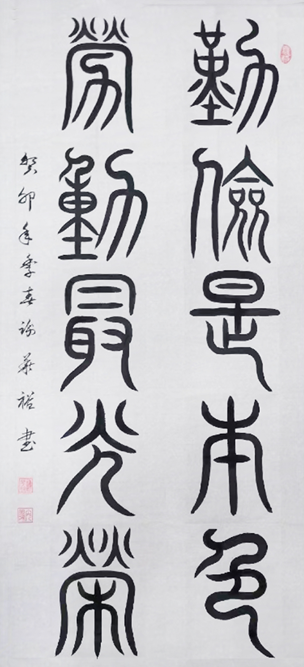 勤儉是本色
勞動最光榮
癸卯年季春 書